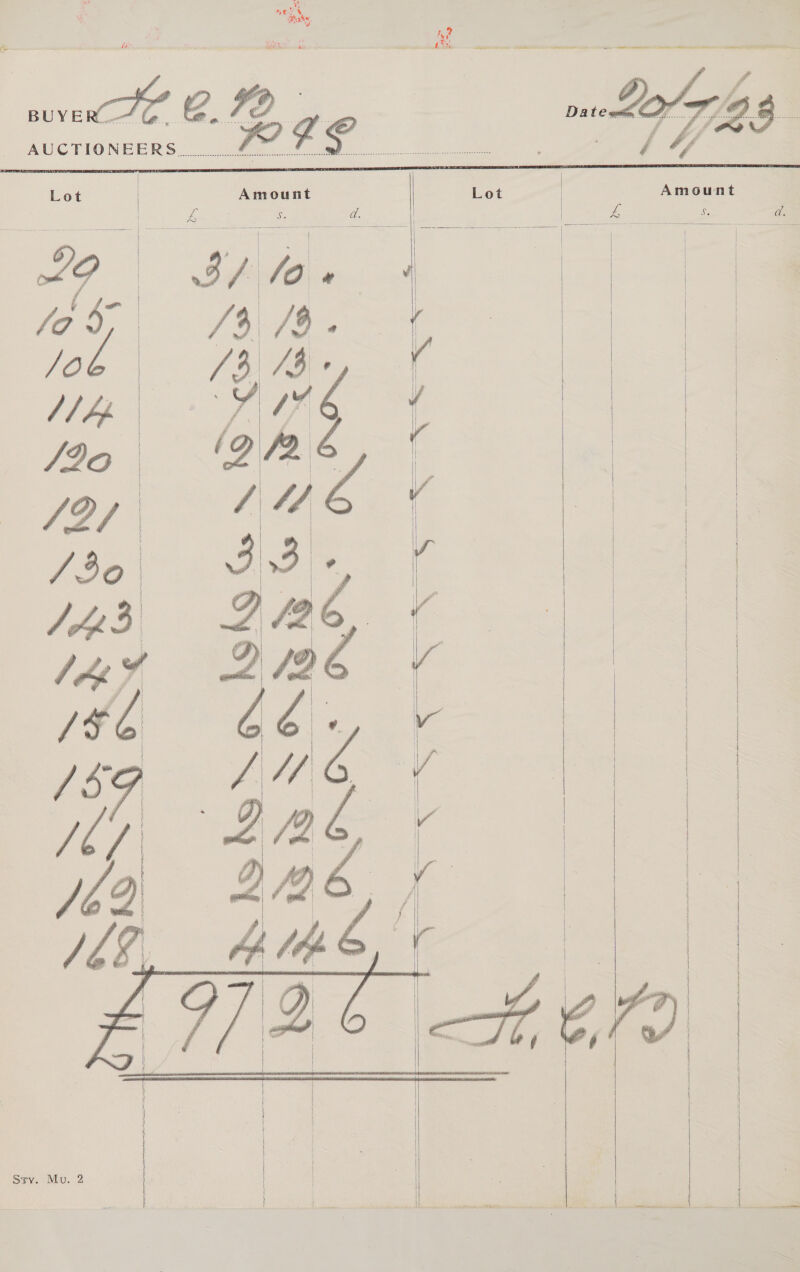 BUYER
Date 20/7/23
AUCTIONEERS P & S
Lot Amount Lot Amount
£ s. d. £ s. d.
29 31 10 . ✓
105 13 13 . ✓
106 13 13 . ✓
114 7 17 6 ✓
120 2 12 6 ✓
121 1 11 6 ✓
130 3 3 . ✓
143 2 12 6 ✓
147 2 12 6 ✓
156 6 6 . ✓
159 1 11 6 ✓
161 2 12 6 ✓
162 2 12 6 ✓
168 4 14 6 ✓
£ 97 2 6
Sty. Mu. 2